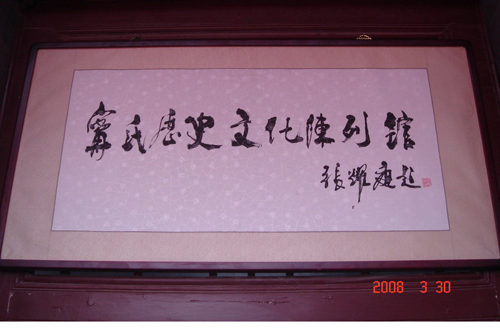 甯氏歷史文化陳列館
張耀庭題
2008 3 30